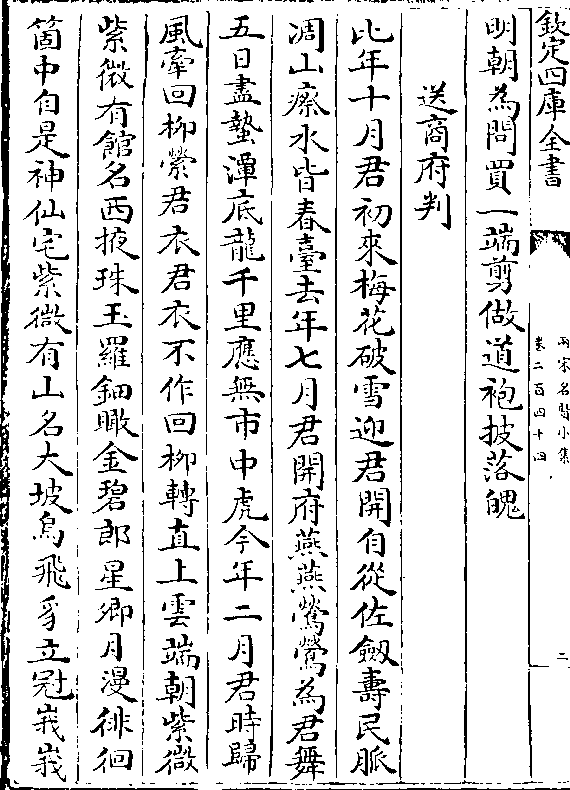 欽定四庫全書
兩宋名賢小集
卷二百四十四
二
明朝為問買一端剪做道袍披落魄
送商府判
比年十月君初來梅花破雪迎君開自從佐劒壽民脈
凋山瘵水皆春臺去年七月君開府燕燕鶯鶯為君舞
五日盡蟄潭底龍千里應無市中虎今年二月君時歸
風牽回柳縈君衣君衣不作回柳轉直上雲端朝紫微
紫微有館名西掖珠玉羅鈿瞰金碧郎星卿月漫徘徊
箇中自是神仙宅紫微有山名大坡烏飛豸立冠峩峩